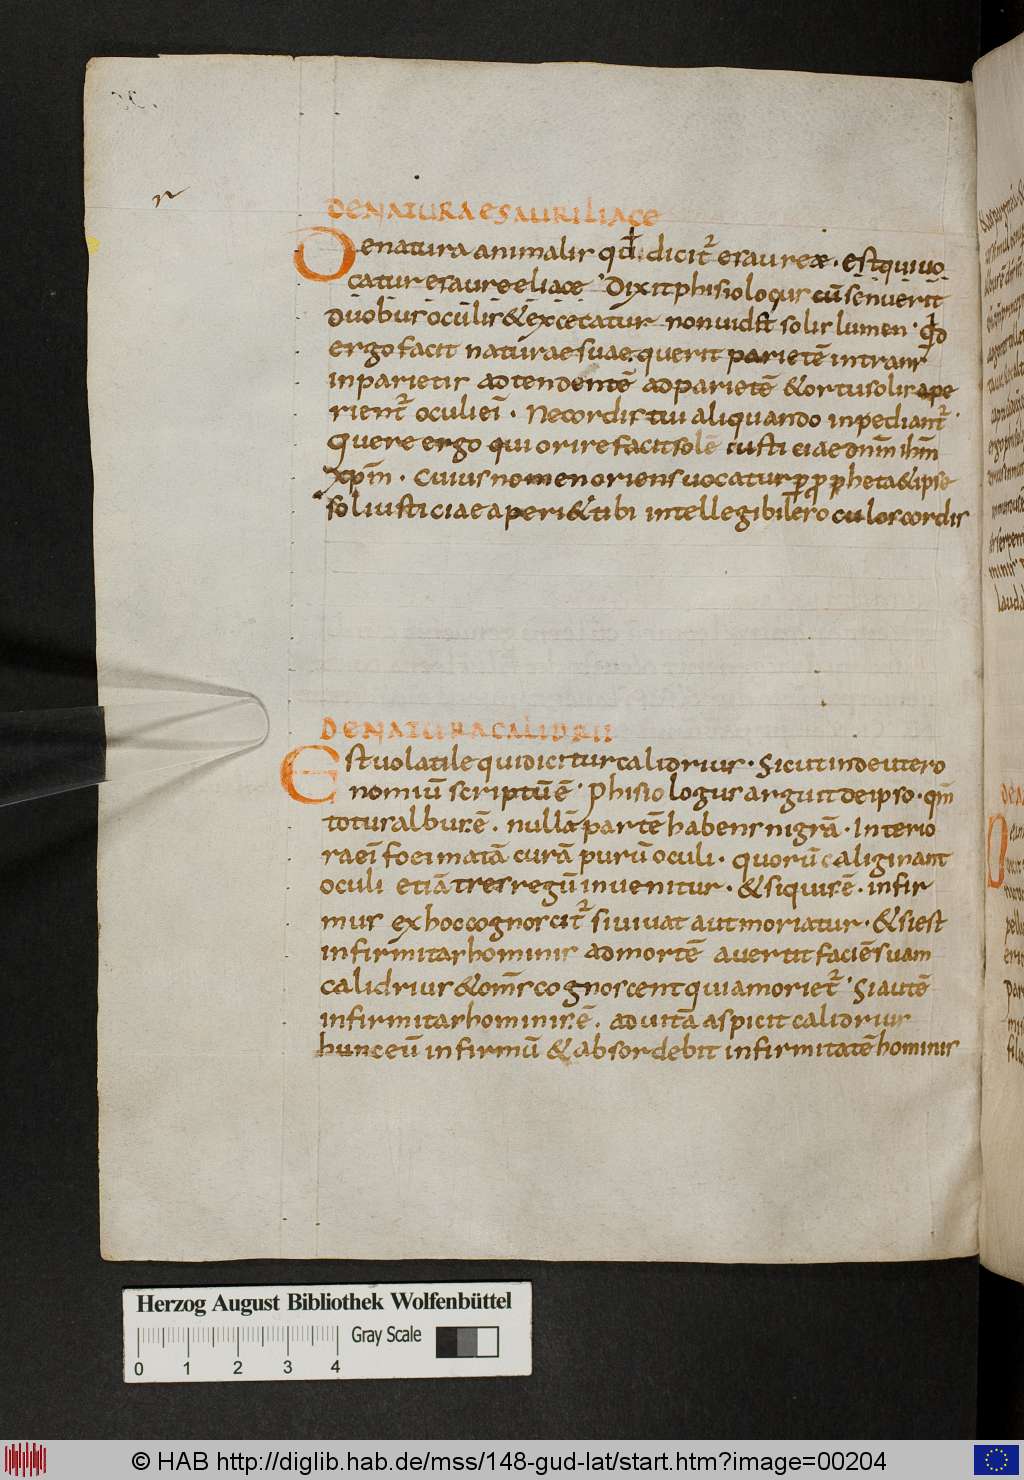 DE NATURA ESAURILIACE
De natura animalis qđ dicit̃ esaureæ · est qui uo
catur esaureeliace · Dixit phisiologus cū senuerit
duobus oculis & excecatur non uid& solis lumen · Qd
ergo facit naturae suae querit parietē intrans
in parietis adtendentē ad parietē & ortu solis ape
rient̃ oculi ei · Ne cordis tui aliquando inpediant̃ ·
Quere ergo qui orire facit solē iusti ciae dnm̄ ihm̄
xpm̄ · cuius nomen oriens uocatur propheta & ipse
sol iusti ciae aperi& tibi intellegibilero culos cordis
DE NATURA CALIDRII
Est uolatile qui dicitur calidrius · Sicut in deutero
nomiū scriptū ē · Phisiologus arguit de ipso · qm̄
totus albus ē · nullā partē habens nigrā · Interio
ra ei foei matā curā purū oculi · quorū caliginant
oculi etiā tres regū inuenitur · & si quis ē · infir
mus ex hoc cognoscit̃ si uiuat aut moriatur · & si est
infirmitas hominis ad mortē auertit faciē suam
calidrius & om̄s cognoscent quia moriet̃ · Si autē
infirmitas hominis ē · ad uitā aspicit calidrius
hunc eū infirmū & absordebit infirmitatē hominis
Herzog August Bibliothek Wolfenbüttel
Gray Scale
0 1 2 3 4
© HAB http://diglib.hab.de/mss/148-gud-lat/start.htm?image=00204